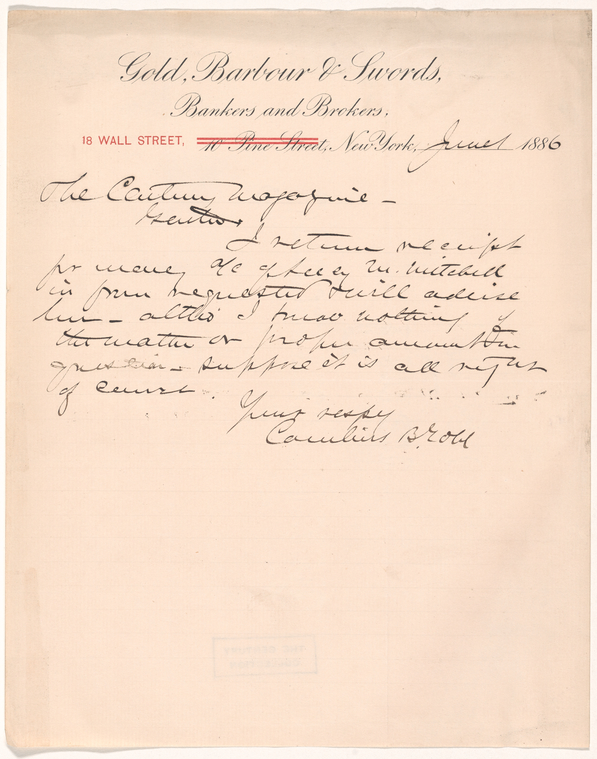 Gold, Barbour & Swords,
Bankers and Brokers,
18 WALL STREET, 10 Pine Street, New York, June 1 1886
The Century Magazine -
Gentn
I return receipt
for money a/c of Lucy M. Mitchell
in form requested & will advise
her - altho I know nothing of
the matter or proper amount in
question - suppose it is all right
of course.
Your respy
Cornelius B. Gold
THE CENTURY